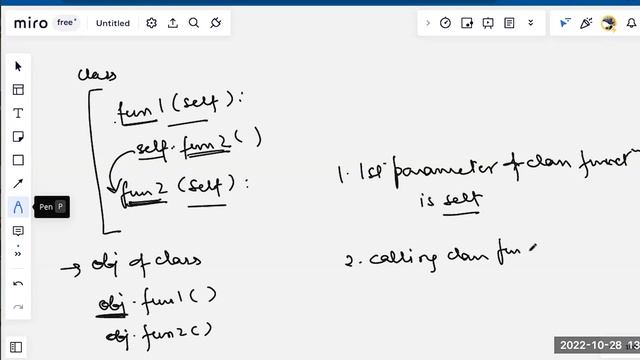 miro free Untitled
class
fun1 (self):
self.fun2()
fun2 (self):
Pen P
→ obj of class
obj.fun1()
obj.fun2()
1. 1st parameter of class function
is self
2. calling class fun
2022-10-28